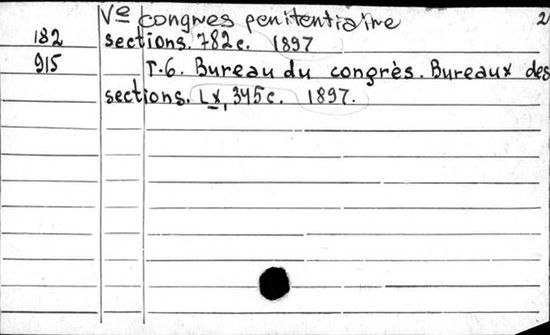 Ve congres penitentiaire 2
182 sections. 782c. 1897
915 T.6. Bureau du congrès. Bureaux des
sections. Lx, 345c. 1897.